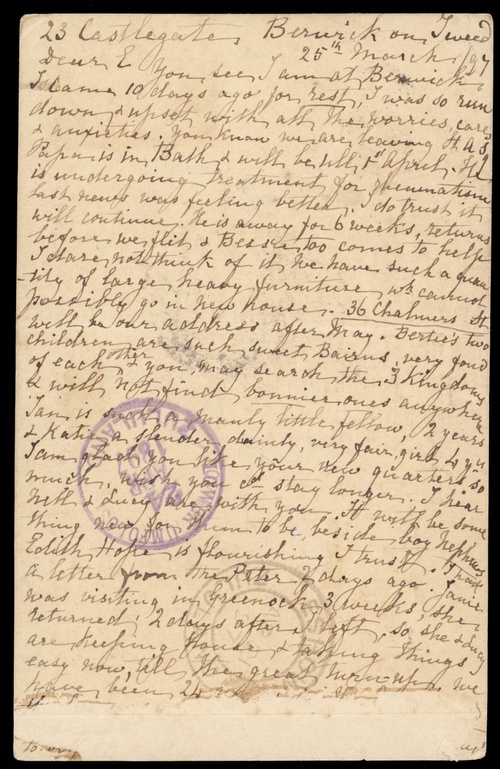 23 Castlegate, Berwick on Tweed
25th March /97
Dear E You see I am at Berwick,
I came 10 days ago for rest, I was so run
down & upset with all the worries, cares
& anxieties. You know we are leaving
Papa is in Bath & will be till 1st April. He
is undergoing treatment for rheumatism
last news was feeling better, I do trust it
will continue. He is away for 6 weeks, returns
before we flit & Bessie too comes to help
I dare not think of it we have such a quan
-tity of large heavy furniture wh cannot
possibly go in new house. 36 Chalmers St
will be our address after May. Bertie's two
children are such sweet Bairns, very fond
of each other & you may search the 3 Kingdoms
& will not find bonnier ones anywhere
Ian is such a manly little fellow, 2 years
& Katie a slender, dainty, very fair, girl 4 ys
I am glad you like your new quarters so
much, wish you cd stay longer. I hear
Nell & Lucy are with you. It will be some
thing new for them to be beside boy nephews
Edith Hope is flourishing I trust.
a letter from the Peter 2 days ago. Janie
was visiting in Greenock 3 weeks, she
returned 2 days after I left, so she & Lucy
are keeping House & taking things
easy now, till the great turn-up. We
have been 24